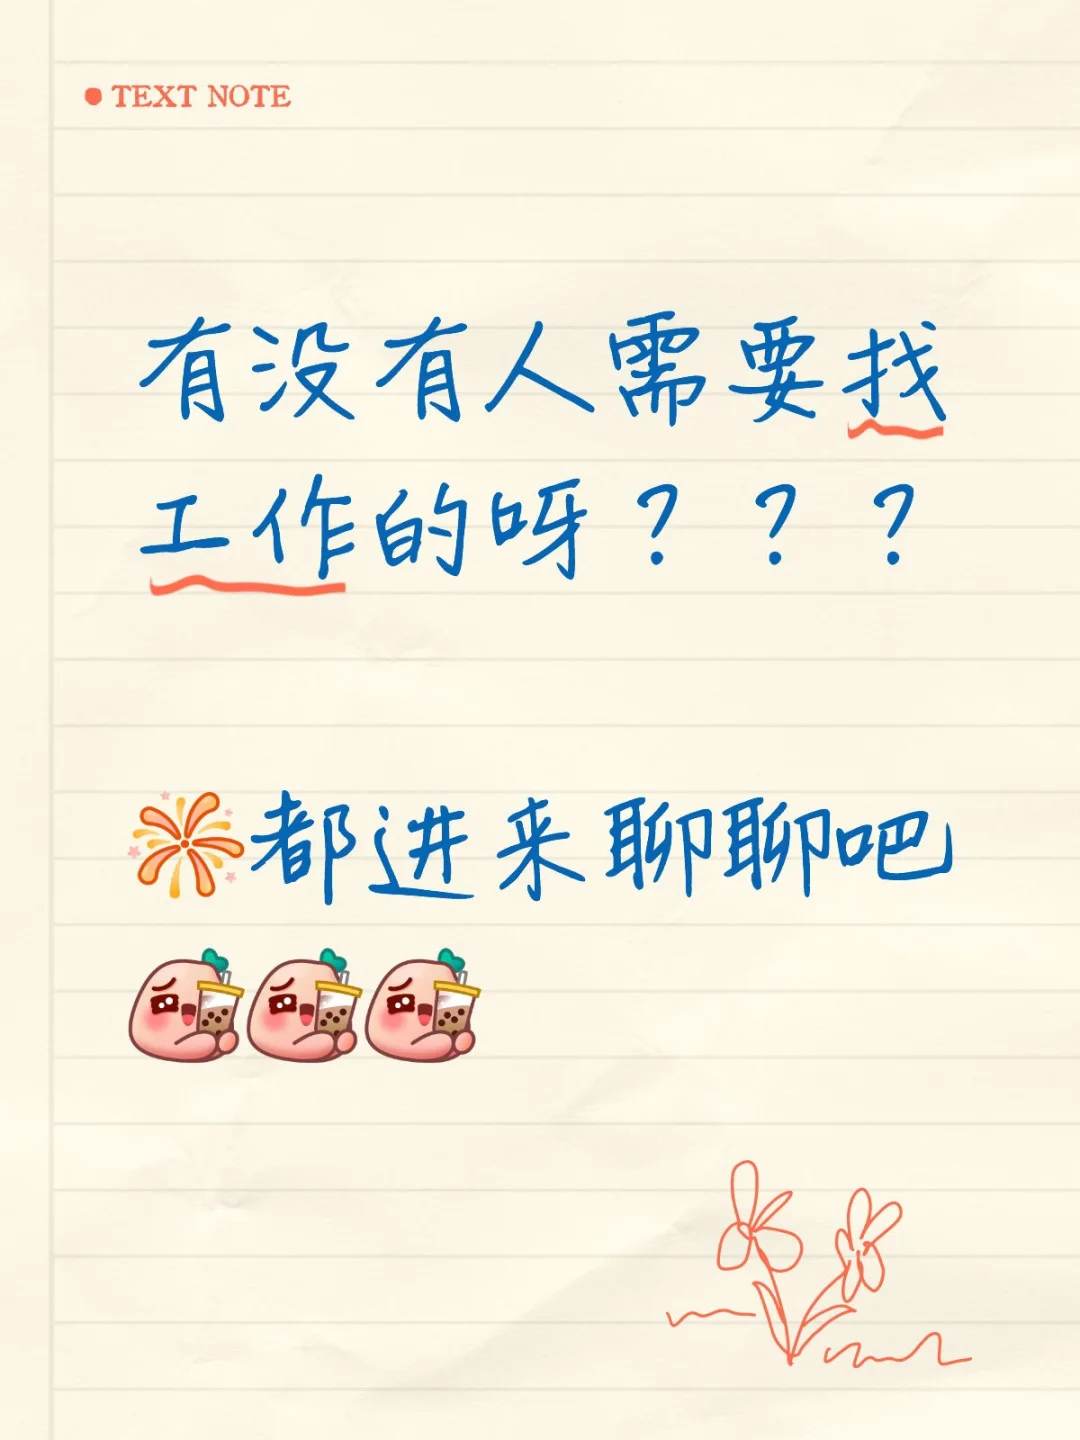 TEXT NOTE
有没有人需要找
工作的呀？？？
都进来聊聊吧